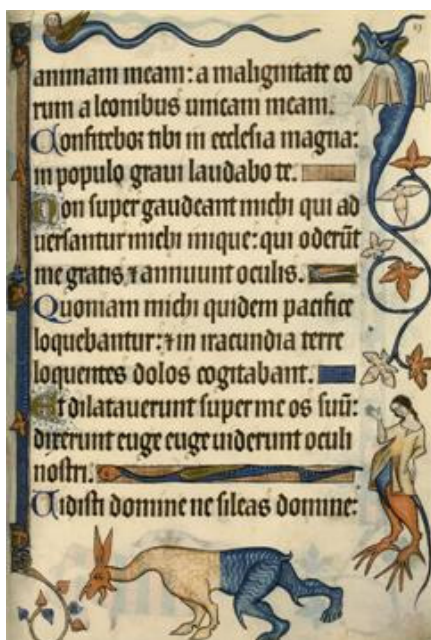 animam meam: a malignitate eo
rum a leonibus unicam meam.
Confitebor tibi in ecclesia magna:
in populo graui laudabo te.
Non super gaudeant michi qui ad
uersantur michi inique: qui oderūt
me gratis ⁊ annuunt oculis.
Quoniam michi quidem pacifice
loquebantur: ⁊ in iracundia terre
loquentes dolos cogitabant.
Et dilatauerunt super me os suū:
dixerunt euge euge uiderunt oculi
nostri.
Uidisti domine ne sileas domine: